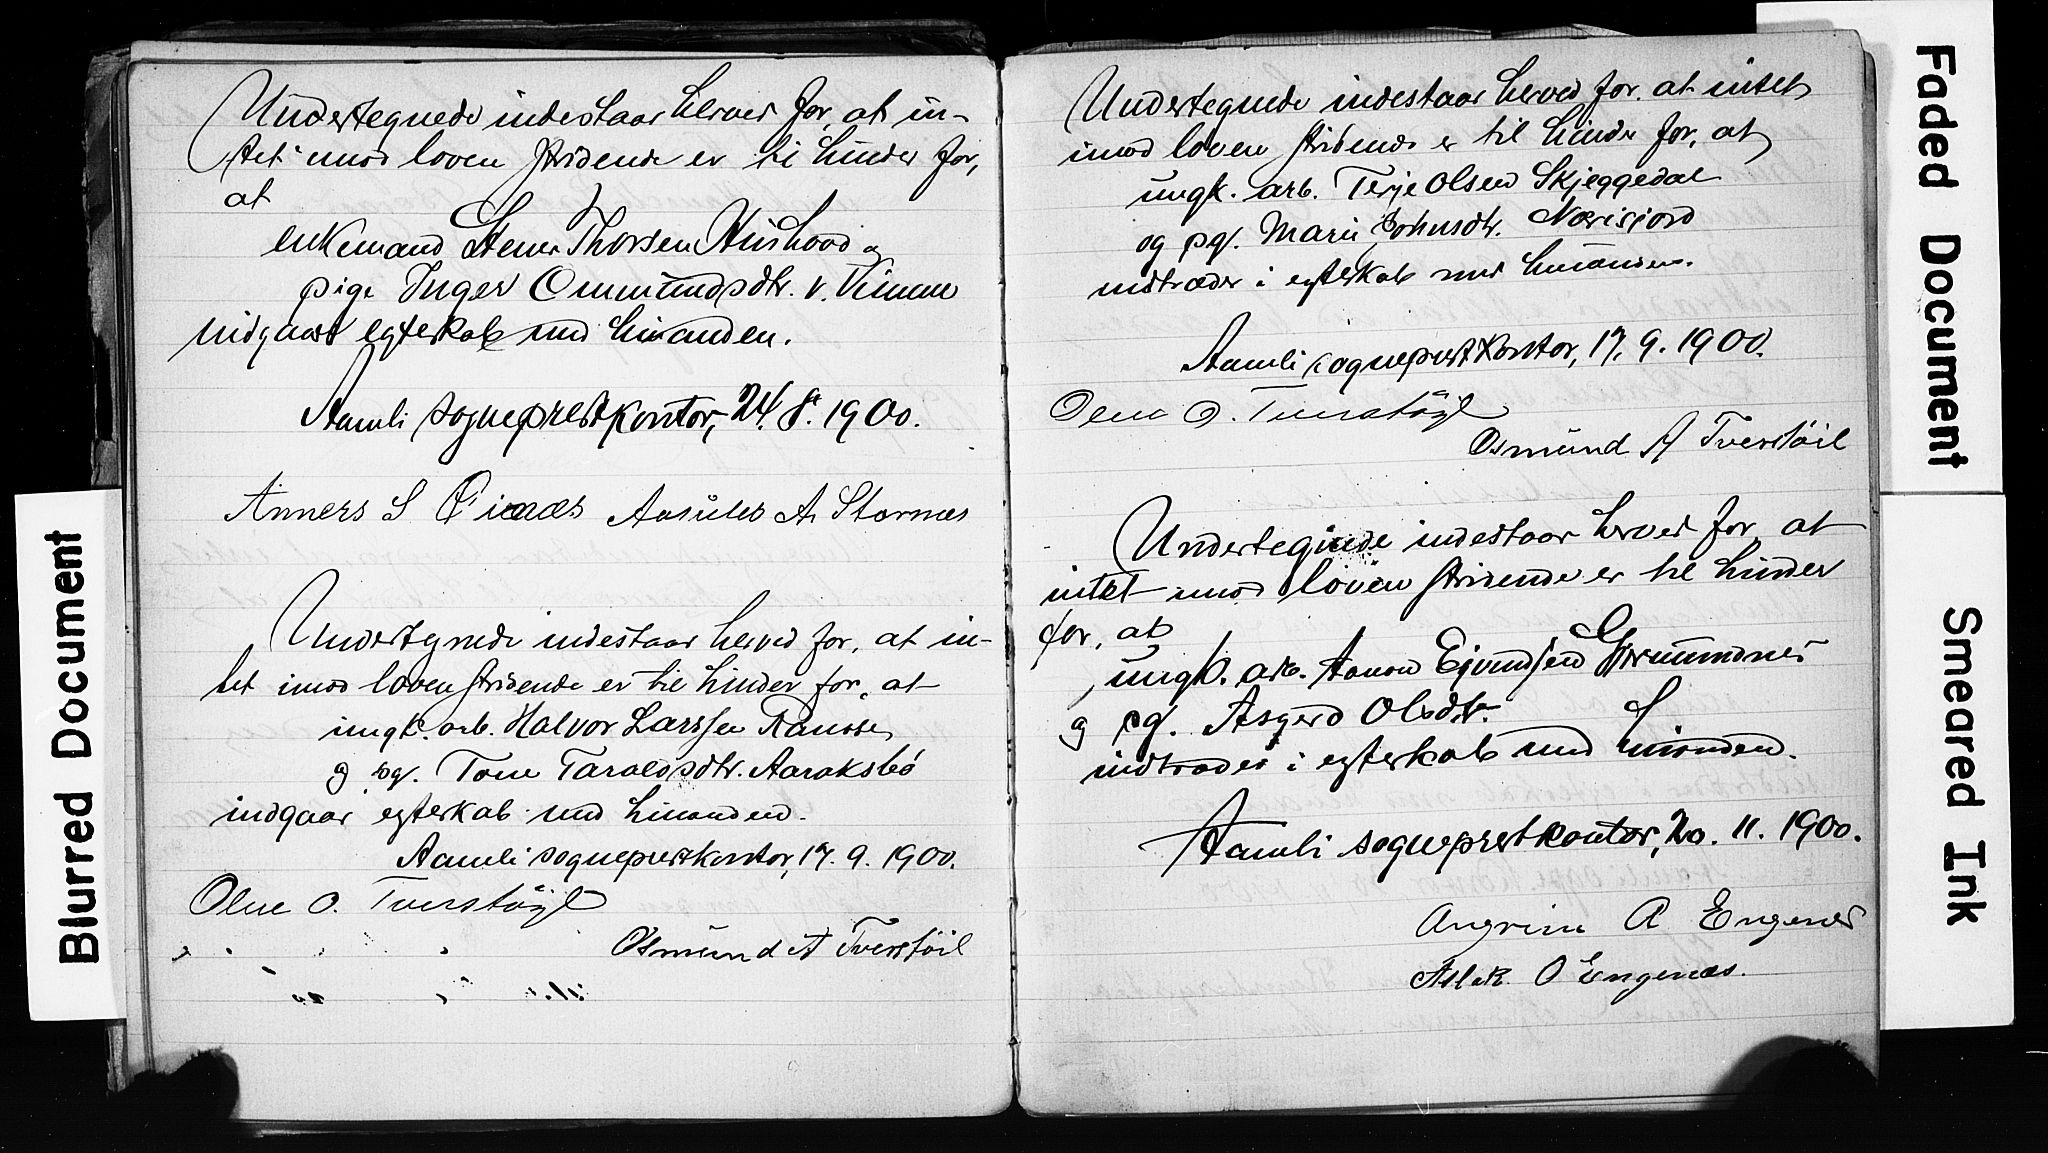 Undertegnede indestaar herved for, at in-
tet imod loven stridende er til hinder for,
at
enkemand Stener Thorsen
pige Inger Ommundsdtr. v. Vimme
indgaar egteskab med hinanden.
Aamli sogneprestkontor, 24. 8. 1900.
Anners S Øinæs Aasulv A. Stornes
Undertegnede indestaar herved for, at in-
tet imod loven stridende er til hinder for, at
ungk. arb. Halvor Larssen
og pg. Tone Taraldsdtr. Aaraksbø
indgaar egteskab med hinanden.
Aamli sogneprestkontor, 17. 9. 1900.
Olene O. Tverstøyl
Osmund A Tverstøil
Undertegnede indestaar herved for, at intet
imod loven stridende er til hinder for, at
ungk. arb. Terje Olsen Skjeggedal
og pg. Marie Johnsdtr. Næsisjord
indtræder i egteskab med hinanden.
Aamli sogneprestkontor, 17. 9. 1900.
Olene O. Tverstøyl
Osmund A Tverstøil
Undertegnede indestaar herved for, at
intet imod loven stridende er til hinder
for, at
ungk. arb. Aanon Ejvindsen
og pg. Asgerd Olsdtr.
indtræder i egteskab med hinanden.
Aamli sogneprestkontor, 20. 11. 1900.
Angrim A Engenes
Aslak O Engenæs.
Blurred Document
Faded Document
Smeared Ink